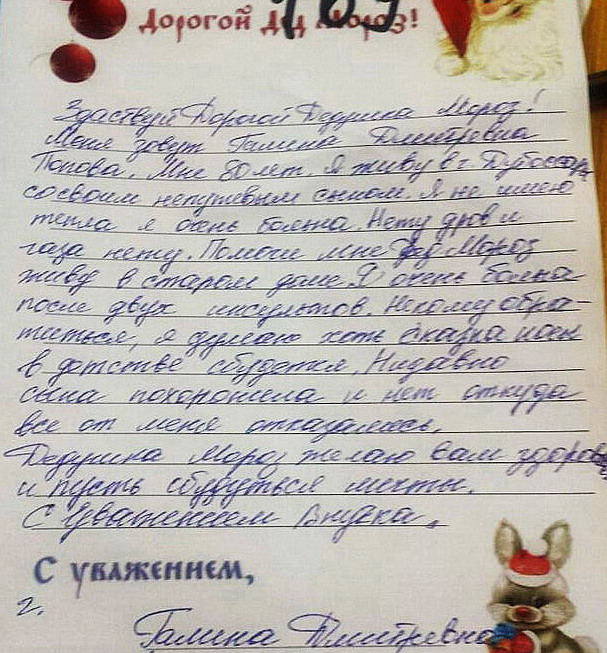 Дорогой Дед Мороз!
Здаствуй Дорогой Дедушка Мороз!
Меня зовут Галина Дмитревна
Попова. Мне 80 лет. Я живу в г. Дубоссары
со своим непутевым сыном. Я не имею
тепла я очень больна. Нету дров и
газа нету. Помоги мне Дед Мороз
живу в старом доме. Я очень больна
после двух инсультов. Некому обра-
титься, я думаю хоть сказка
в детстве сбудется. Нидавно
сына похоронила и нет откуда
все от меня отказались.
Дедушка Мороз желаю вам здоровья
и пусть сбудуться мечты.
С Уважением Внучка.
С уважением,
г.
Галина Дмитревна